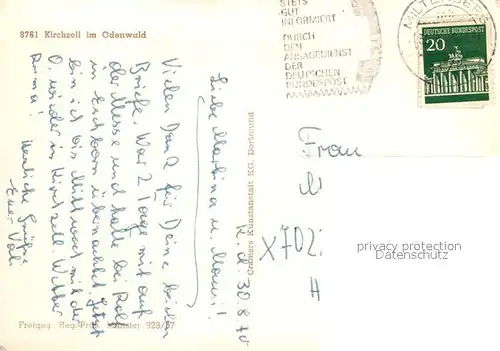 8761 Kirchzell im Odenwald
STETS
GUT
INFORMIERT
DURCH
DEN
ANSAGEDIENST
DER
DEUTSCHEN
BUNDESPOST
MILTENBERG
DEUTSCHE BUNDESPOST
20
K. d. 30.8.70
Liebe Martina u. Mani!
Vielen Dank für Deine beiden
Briefe. War 2 Tage mit auf
der Messe und habe bei Rolf
in Eschborn übernachtet. Jetzt
bin ich bis Mittwoch mit der
O. wieder in Kirchzell. Wetter
prima! Herzliche Grüße
Euer Vati
Cramers Kunstanstalt KG, Dortmund
Frau
M
X702
H
privacy protection
Datenschutz
Freigeg. Reg.-Präs. Münster 928/67